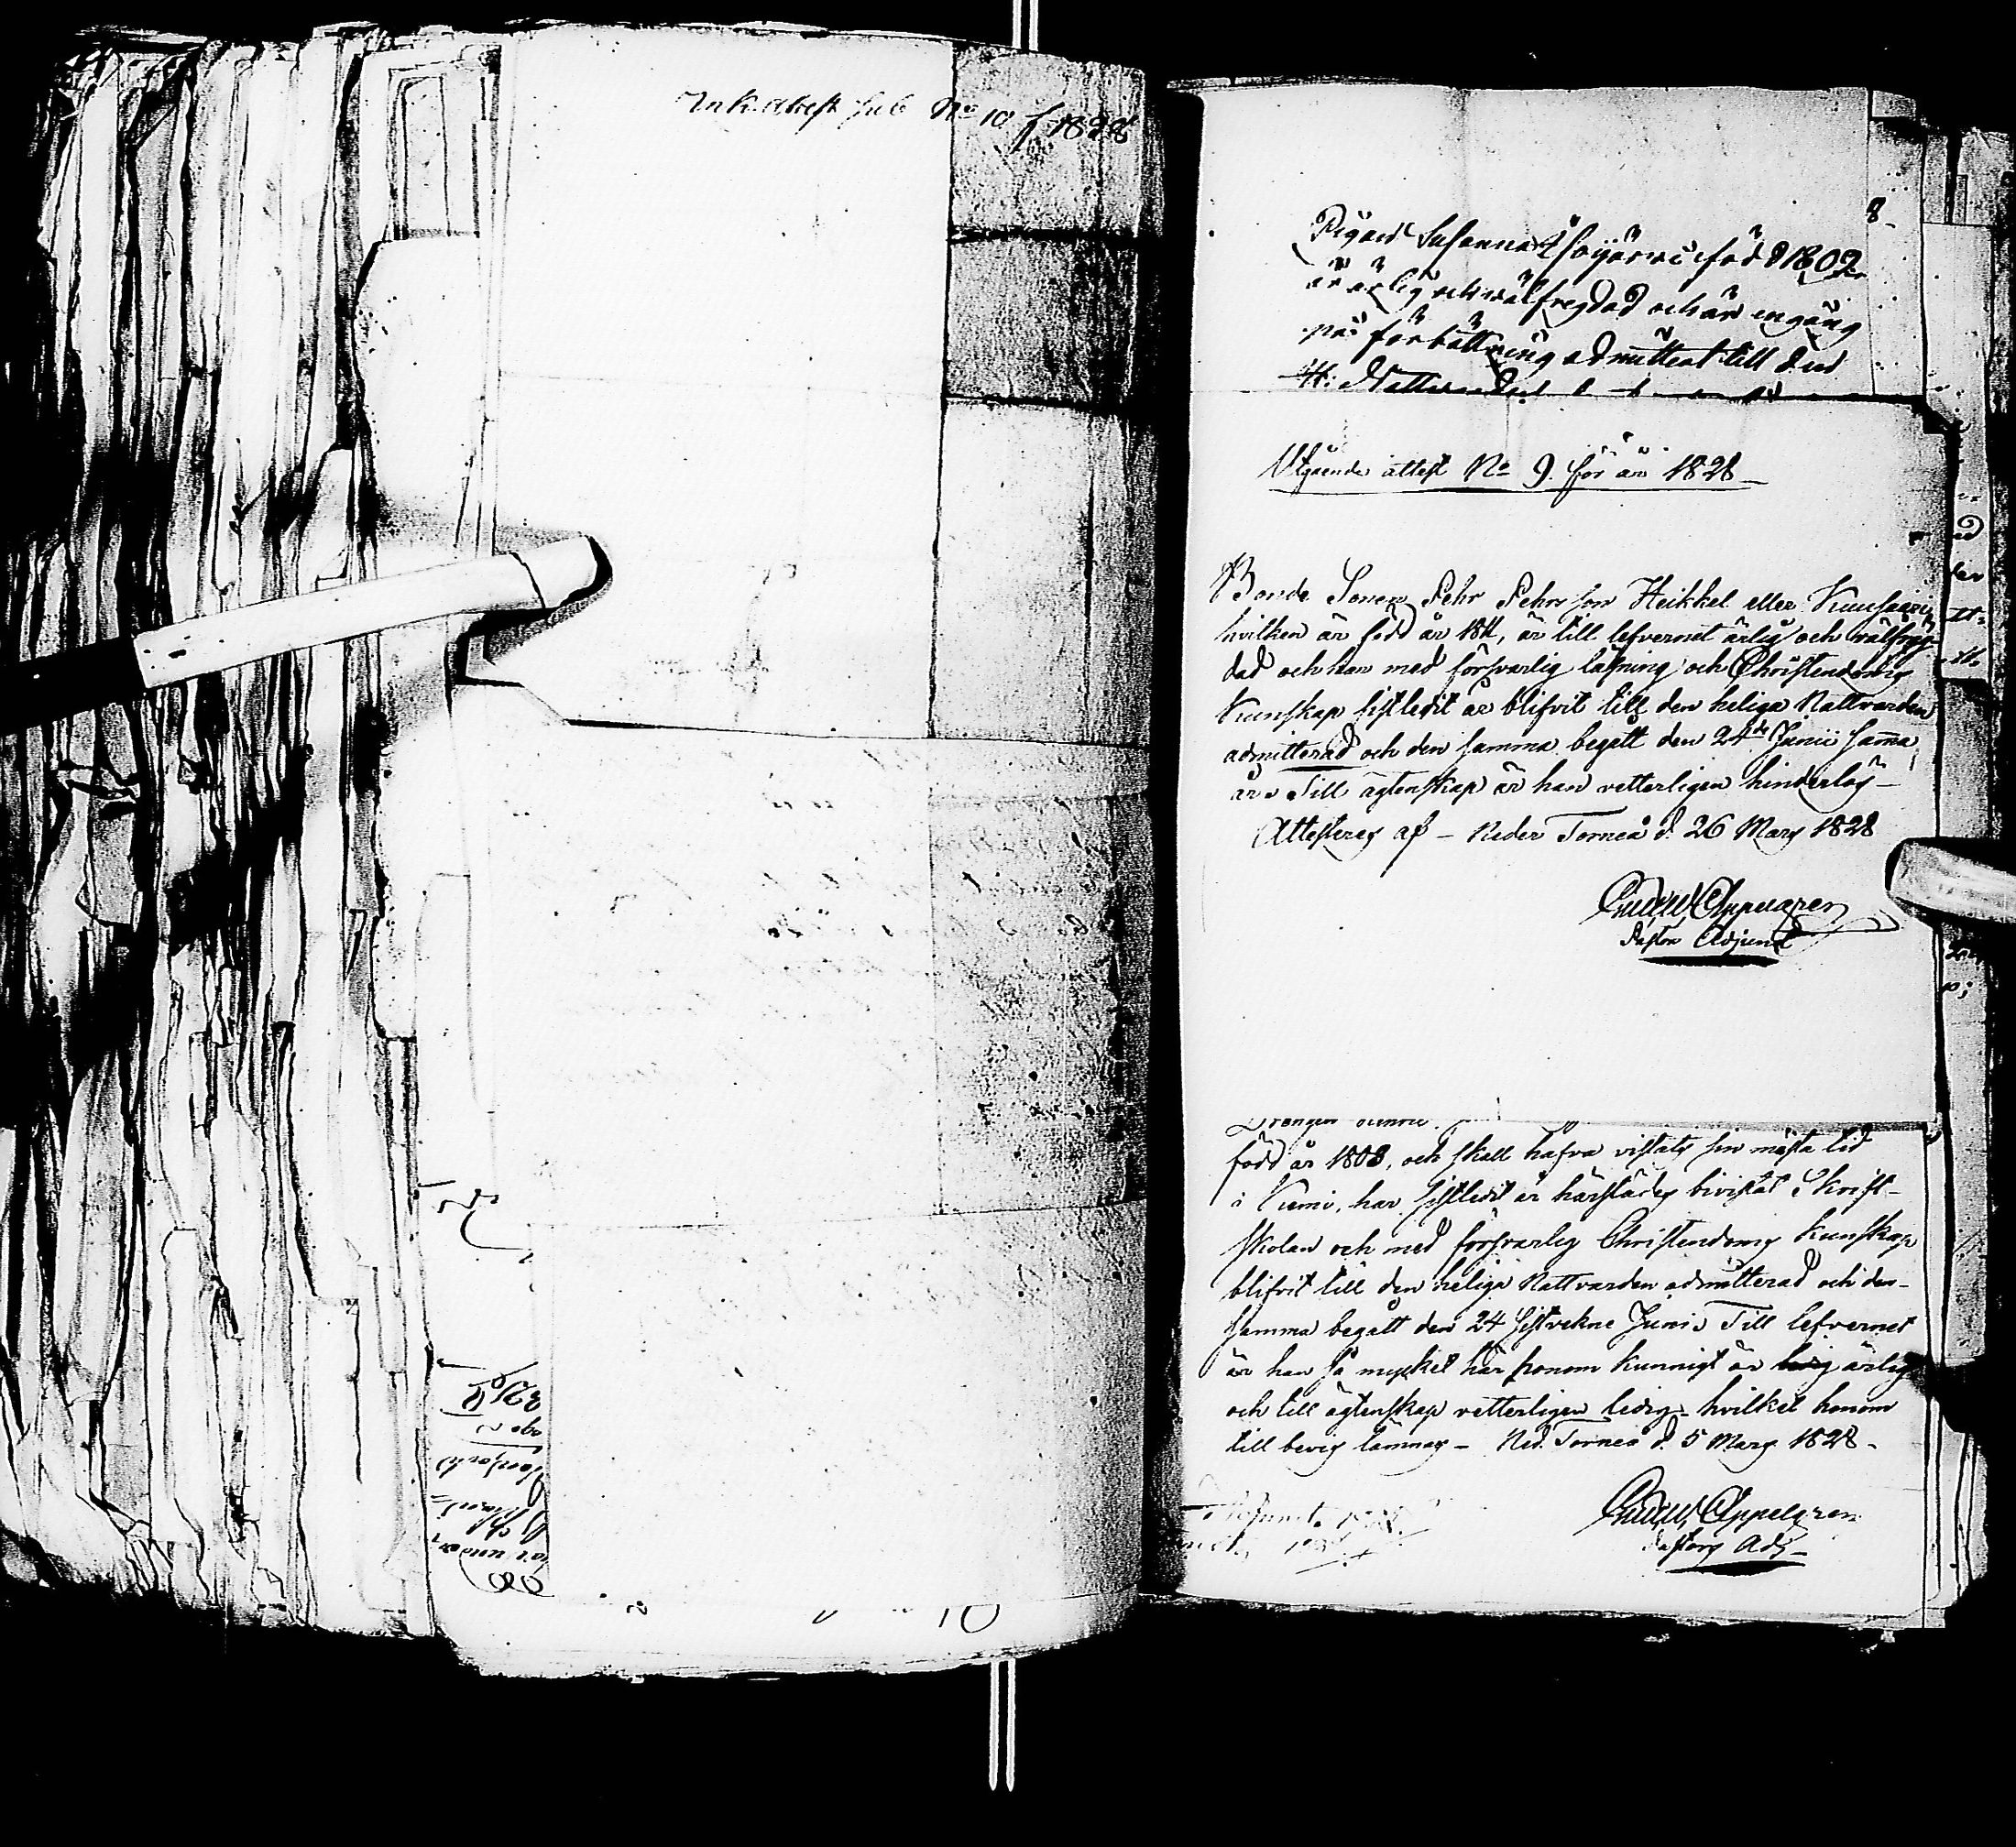 Ink. Attest sub No 10 f. 1828
8
Pigan Susanna Isojärvi född 1802
är ärlig och välfrägdad och är en gång
på förbättring admitterat till den
H: Nattvarden
Utgående attest No 9. för år 1828
Bonde Sonen Pehr Pehrsson Heikkel eller Kuusijärvi
hvilken är född år 1811, är till lefvernet ärlig och välfräg
dad och har med försvarlig läsning och Christendoms
Kunskap sistledit år blifvit till den heliga Nattvarden
admitterad och den samma begått den 24de Junii samma
år. Till ägtenskap är han vetterligen hinderlös -
Attesteras af - Neder Torneå d. 26 Mars 1828
Appelgren
Pastor Adjunct
Drängen
född år 1808, och skall hafva vistats sin mästa tid
i Kemi, har sistledit år härstädes bivistat Skrift-
skolan och med försvarlig Christendoms kunskap
blifvit till den heliga Nattvarden admitterad och den-
samma begått den 24 sistvekne Junii. Till lefvernet
är han så mycket här honom kunnigt är ärlig
och till ägtenskap vetterligen ledig - hvilket honom
till bevis lämnas - Ned. Torneå d. 5 Mars 1828 -
Appelgren
Pastors Adj-
10